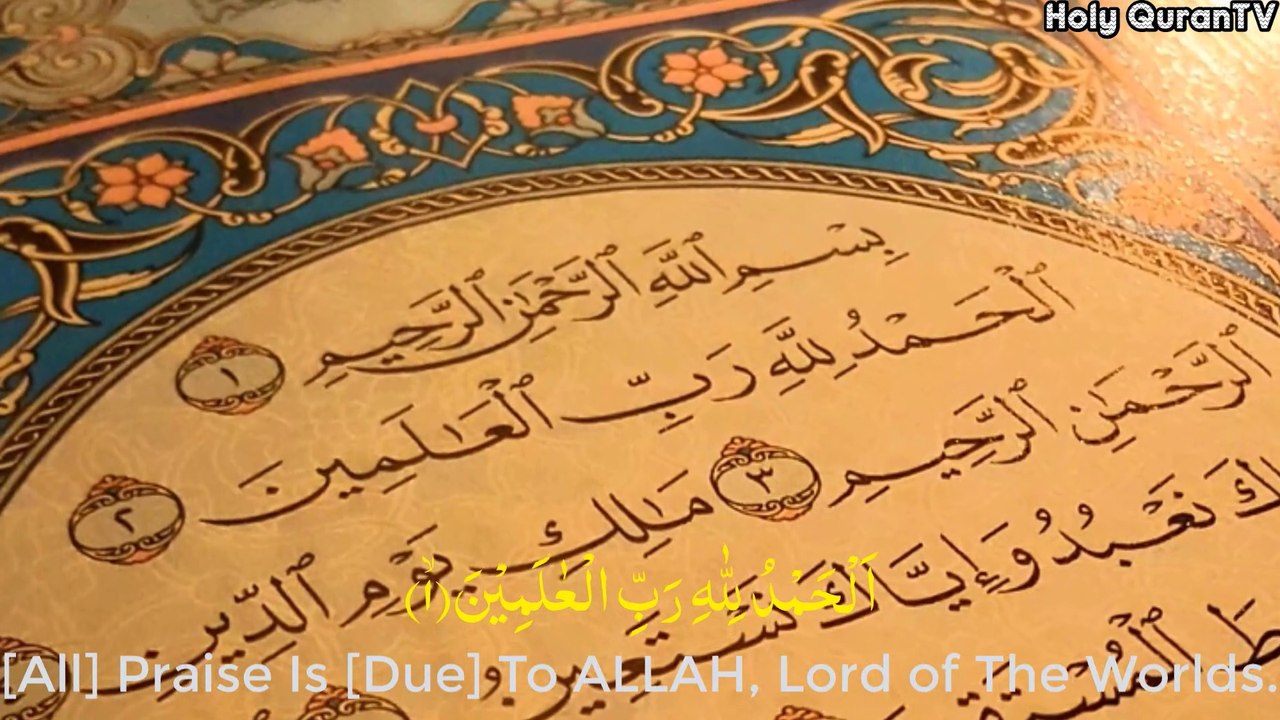 Holy QuranTV
بِسْمِ ٱللَّهِ ٱلرَّحْمَٰنِ ٱلرَّحِيمِ ١
ٱلْحَمْدُ لِلَّهِ رَبِّ ٱلْعَٰلَمِينَ ٢
ٱلرَّحْمَٰنِ ٱلرَّحِيمِ ٣ مَٰلِكِ يَوْمِ ٱلدِّينِ
نَعْبُدُ وَإِيَّاكَ نَسْتَعِينُ
اَلْحَمْدُ لِلّٰهِ رَبِّ الْعٰلَمِيْنَ(۱)
[All] Praise Is [Due] To ALLAH, Lord of The Worlds.